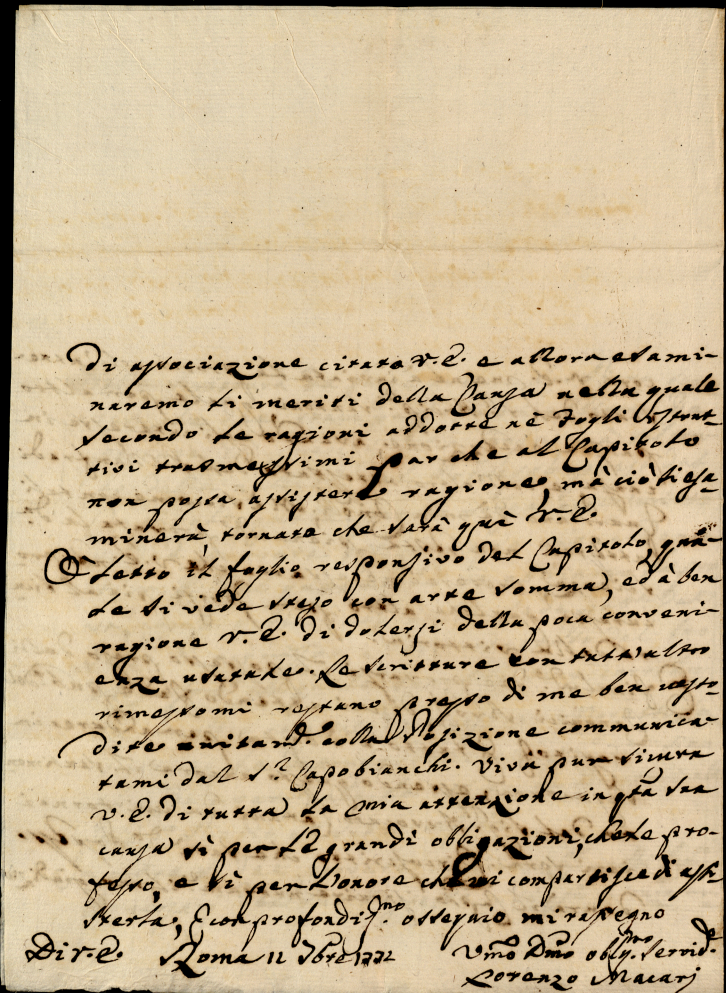 di associazione citate V. E. e allora esami-
naremo li meriti della Causa nella quale
secondo le ragioni addotte nè Fogli istrut-
tivi trasmessimi par che al Capitolo
non possa assistere ragione, mà ciò si esa-
minerà tornate che sarà quì V. E.
Ò letto il foglio responsivo del Capitolo, qua-
le si vede steso con arte somma, ed à ben
ragione V. E. di dolersi della poca conveni-
enza usatale. Le scritture con tutt'altro
rimessomi restano presso di me ben custo-
dite unitam.e colla Posizione communica-
tami dal S.r Capobianchi. Viva pur sicura
V. E. di tutta la mia attenzione in q̃ta sua
causa sì per le grandi obbligazioni, che le pro-
fesso, e sì per l'onore che mi compartisce di assi-
sterla, E con profondiss.mo ossequio mi rassegno
Di V. E. Roma 12 7bre 1772 Vmo Dmo oblg.mo Servid.e
Lorenzo Macarj